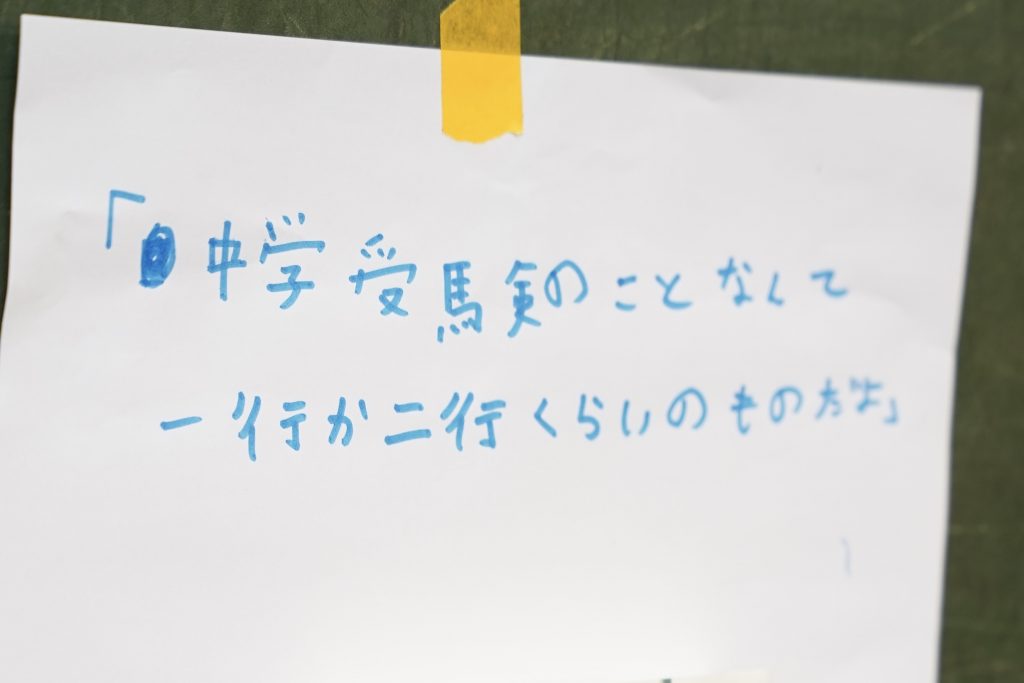 「中学受験のことなんて
一行か二行くらいのものだよ」